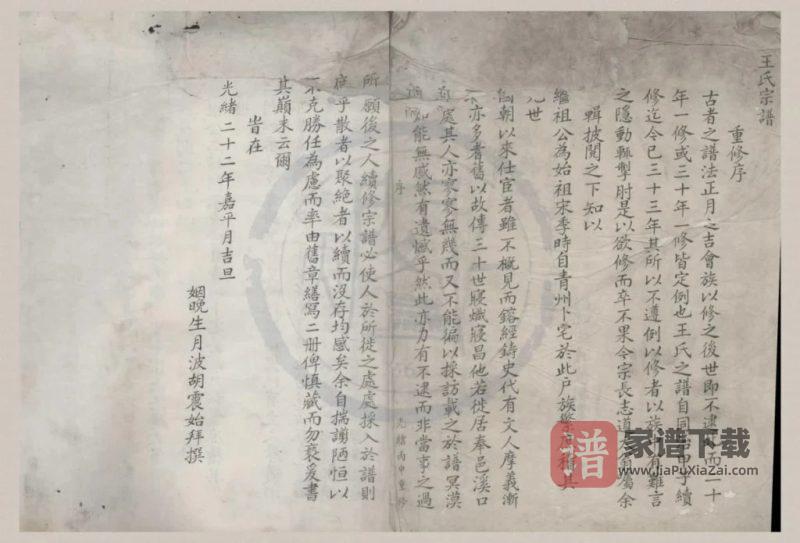 王氏宗譜
重修序
古者之譜法正月之吉會族以修之後世即不逮而二十
年一修或三十年一修皆定例也王氏之譜自同治甲子續
修迄今已三十三年其所以不遵例以修者以族中有難言
之隱動輒掣肘是以欲修而卒不果今宗長志道屬余
輯披閱之下知以
繼祖公為始祖宋季時自青州卜宅於此戶族繁其
世
國朝以來仕宦者雖不概見而鎔經鑄史代有文人摩義漸
亦多耆舊以故傳三十世寢熾寢昌他若徙居奉邑溪口
處其人亦寥寥無幾而又不能徧以採訪載之於譜冥漠
如能無慼然有遺憾乎然此亦力有不逮而非當事之過
序
光緒丙申重修
所願後之人續修宗譜必使人於所徙之處處採入於譜則
庶乎散者以聚絕者以續而沒存均感矣余自揣譾陋恒以
不克勝任為慮而率由舊章繕寫二冊俾慎藏而勿褻爰書
其巔末云爾
旹在
光緒二十二年嘉平月吉旦
姻晚生月波胡震始拜撰
譜
家谱下载
www.JiaPuXiaZai.com